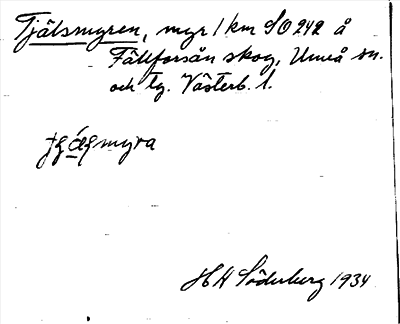 Tjälsmyren, myr 1 km SO 242 å
Fällforsån skog, Umeå sn.
och tg. Västerb. l.
myra
H H Söderberg 1934